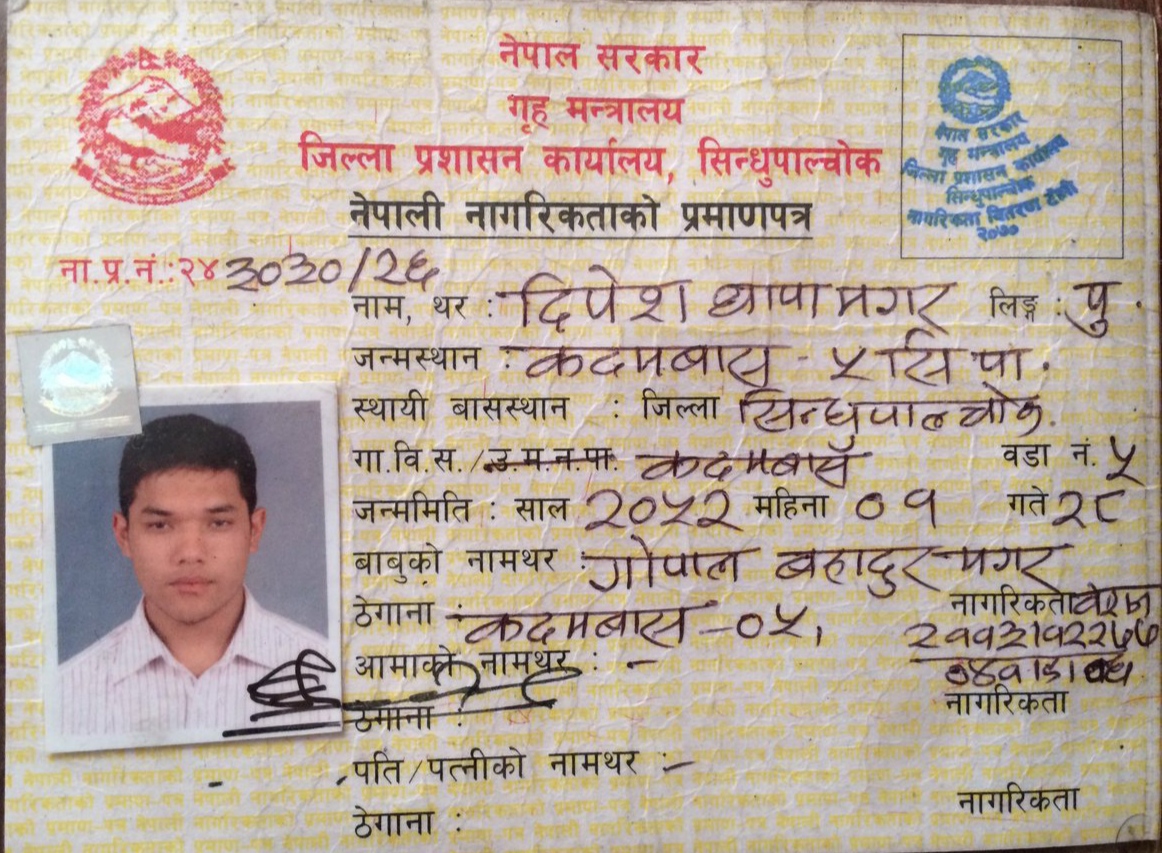 नेपाल सरकार
गृह मन्त्रालय
जिल्ला प्रशासन कार्यालय, सिन्धुपाल्चोक
नेपाली नागरिकताको प्रमाणपत्र
नेपाल सरकार
गृह मन्त्रालय
जिल्ला प्रशासन कार्यालय
सिन्धुपाल्चोक
नागरिकता वितरण टोली
२०७०
ना.प्र.नं.:२४ ३०३०/२६
नाम, थर : दिपेश थापा मगर लिङ्ग : पु.
जन्मस्थान : कदमबास - ५ सि पा.
स्थायी बासस्थान : जिल्ला सिन्धुपाल्चोक.
गा.वि.स./उ.म.न.पा. कदमबास वडा नं. ५
जन्ममिति : साल २०५२ महिना ०१ गते २८
बाबुको नामथर : गोपाल बहादुर मगर
ठेगाना : कदमबास - ०५, नागरिकता
आमाको नामथर : -
ठेगाना : नागरिकता
पति/पत्नीको नामथर :-
ठेगाना : नागरिकता